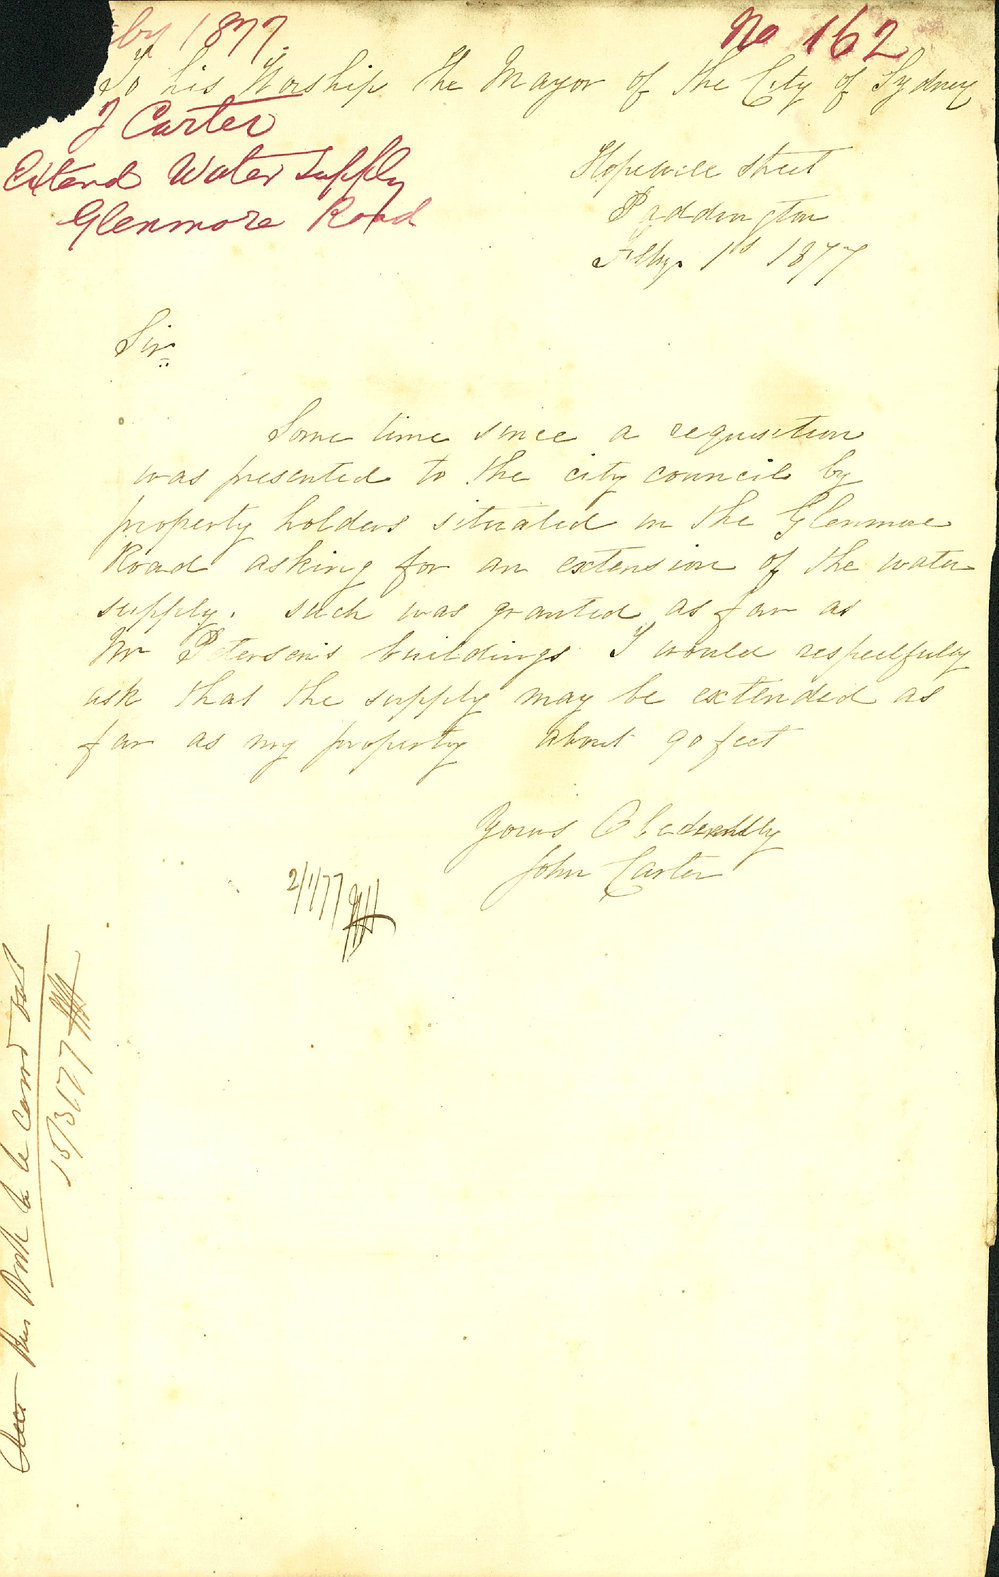 by 1877.
No 162
To his Worship the Mayor of the City of Sydney
J Carter
Extend Water Supply
Glenmore Road
Hopewell Street
Paddington
Feby. 1st 1877
Sir
Some time since a requisition
was presented to the city council by
property holders situated in the Glenmore
Road asking for an extension of the water
supply. such was granted as far as
Mr Peterson's buildings I would respectfully
ask that the supply may be extended as
far as my property about 90 feet
Yours Obediently
John Carter
2/1/77
this Work to be carrd out
15/3/77